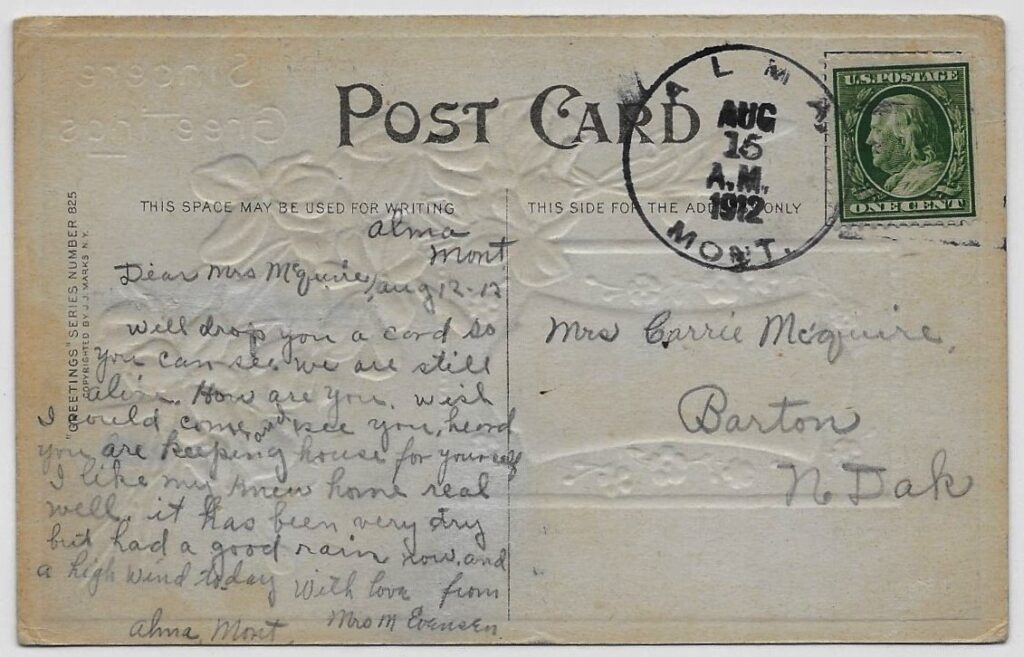 Sincere
Greetings
POST CARD
ALMA
AUG
15
A.M.
1912
MONT.
U.S. POSTAGE
ONE CENT
THIS SPACE MAY BE USED FOR WRITING
THIS SIDE FOR THE ADDRESS ONLY
"GREETINGS" SERIES NUMBER 825
COPYRIGHTED BY J.J. MARKS N.Y.
Alma
Mont
Dear Mrs McGuire, Aug 12-12
will drop you a card so
you can see we are still
alive. How are you. wish
I could come and see you, heard
you are keeping house for yourself
I like my knew home real
well, it has been very dry
but had a good rain now, and
a high wind today with love from
Mrs M Evensen
Alma, Mont.
Mrs Carrie McGuire,
Barton
N Dak